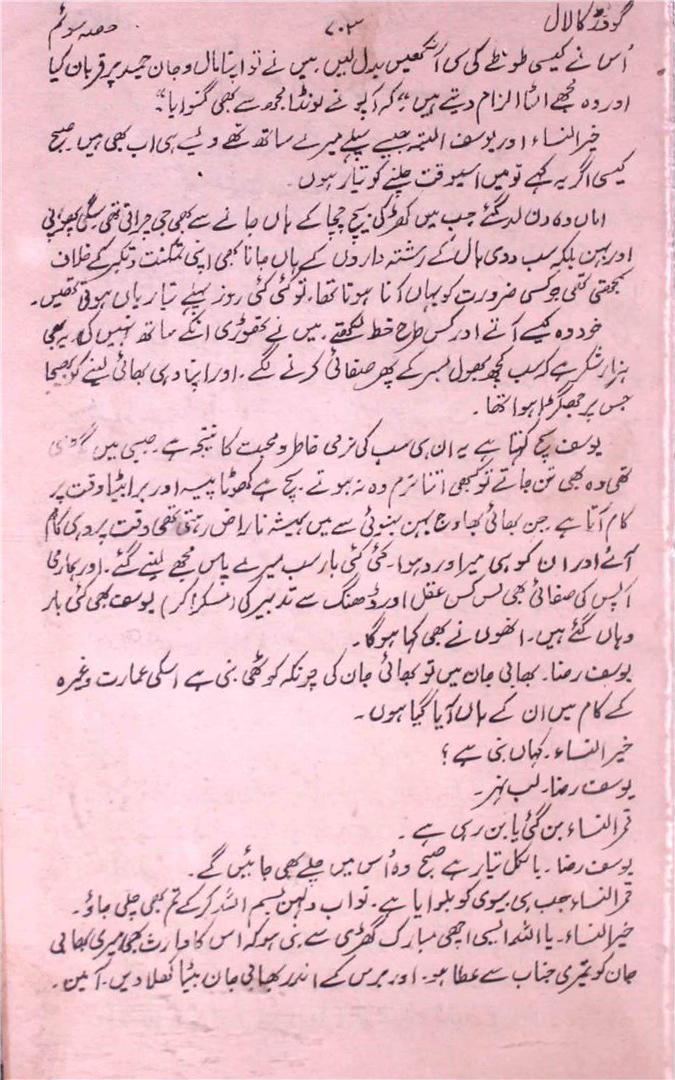 گودڑ کا لال ۷۰۳ حصہ سوئم
اُس نے کیسی طوطے کی سی آنکھیں بدل لیں۔ میں نے تو اپنا مال و جان حمید پر قربان کیا
اور وہ مجھے الٹا الزام دیتے ہیں "کہ آپو نے لونڈا مجھ سے بھی گنوایا"
خیرالنساء اور یوسف البتہ جیسے پہلے میرے ساتھ تھے ویسے ہی اب بھی ہیں۔ صبح
کیسی اگر یہ کہے تو میں اسیوقت چلنے کو تیار ہوں۔
اماں وہ دن لد گئے جب میں کھڑکی بیچ چچا کے ہاں جانے سے بھی جی چراتی تھی سگی پھوپی
اور بہن بلکہ سب ددی ہال کے رشتہ داروں کے ہاں جانا بھی اپنی تمکنت و تکبر کے خلاف
سمجھتی تھی جو کسی ضرورت کو یہاں آنا ہوتا تھا، تو کئی کئی روز پہلے تیاریاں ہوتی تھیں۔
خود وہ کیسے آتے اور کس طرح خط لکھتے۔ میں نے تھوڑی انکے ساتھ نہیں کی۔ یہ بھی
ہزار شکر ہے کہ سب کچھ بھول بسر کے پھر صفائی کرنے لگے۔ اور اپنا وہی بھائی لینے کو بھیجا
جس پر جھگڑا ہوا تھا۔
یوسف سچ کہتا ہے یہ ان ہی سب کی نرمی خاطر و محبت کا نتیجہ ہے۔ جیسی میں
تھی وہ بھی تن جاتے تو کبھی اتنا نرم وہ نہ ہوتے۔ سچ ہے کھوٹا پیسہ اور برا بیٹا وقت پر
کام آتا ہے۔ جن بھائی بھاوج بہن بہنوئی سے میں ہمیشہ ناراض رہتی تھی وقت پر وہی کام
آئے اور ان کو ہی میرا درد ہوا۔ کئی کئی بار سب میرے پاس مجھے لینے گئے۔ اور ہماری
آپس کی صفائی بھی کس کس عقل اور ڈھنگ سے تدبیر کی (مسکرا کر) یوسف بھی کئی بار
وہاں گئے ہیں۔ انھوں نے بھی کہا ہوگا۔
یوسف رضا۔ بھابی جان میں تو بھائی جان کی چونکہ کوٹھی بنی ہے اسکی عمارت وغیرہ
کے کام میں ان کے ہاں آیا گیا ہوں۔
خیرالنساء۔ کہاں بنی ہے؟
یوسف رضا۔ لب نہر۔
قمرالنساء بن گئی یا بن رہی ہے۔
یوسف رضا۔ بالکل تیار ہے صبح وہ اُس میں چلے بھی جائیں گے۔
قمرالنساء جب ہی بیوی کو بلوایا ہے۔ تو اب دلہن بسم اللہ کر کے تم بھی چلی جاؤ۔
خیرالنساء۔ یا اللہ ایسی اچھی مبارک گھڑی سے بنی ہو کہ اس کا وارث بھی میری بھابی
جان کو تیری جناب سے عطا ہو۔ اور برس کے اندر بھابی جان بیٹا کھلا دیں۔ آمین۔